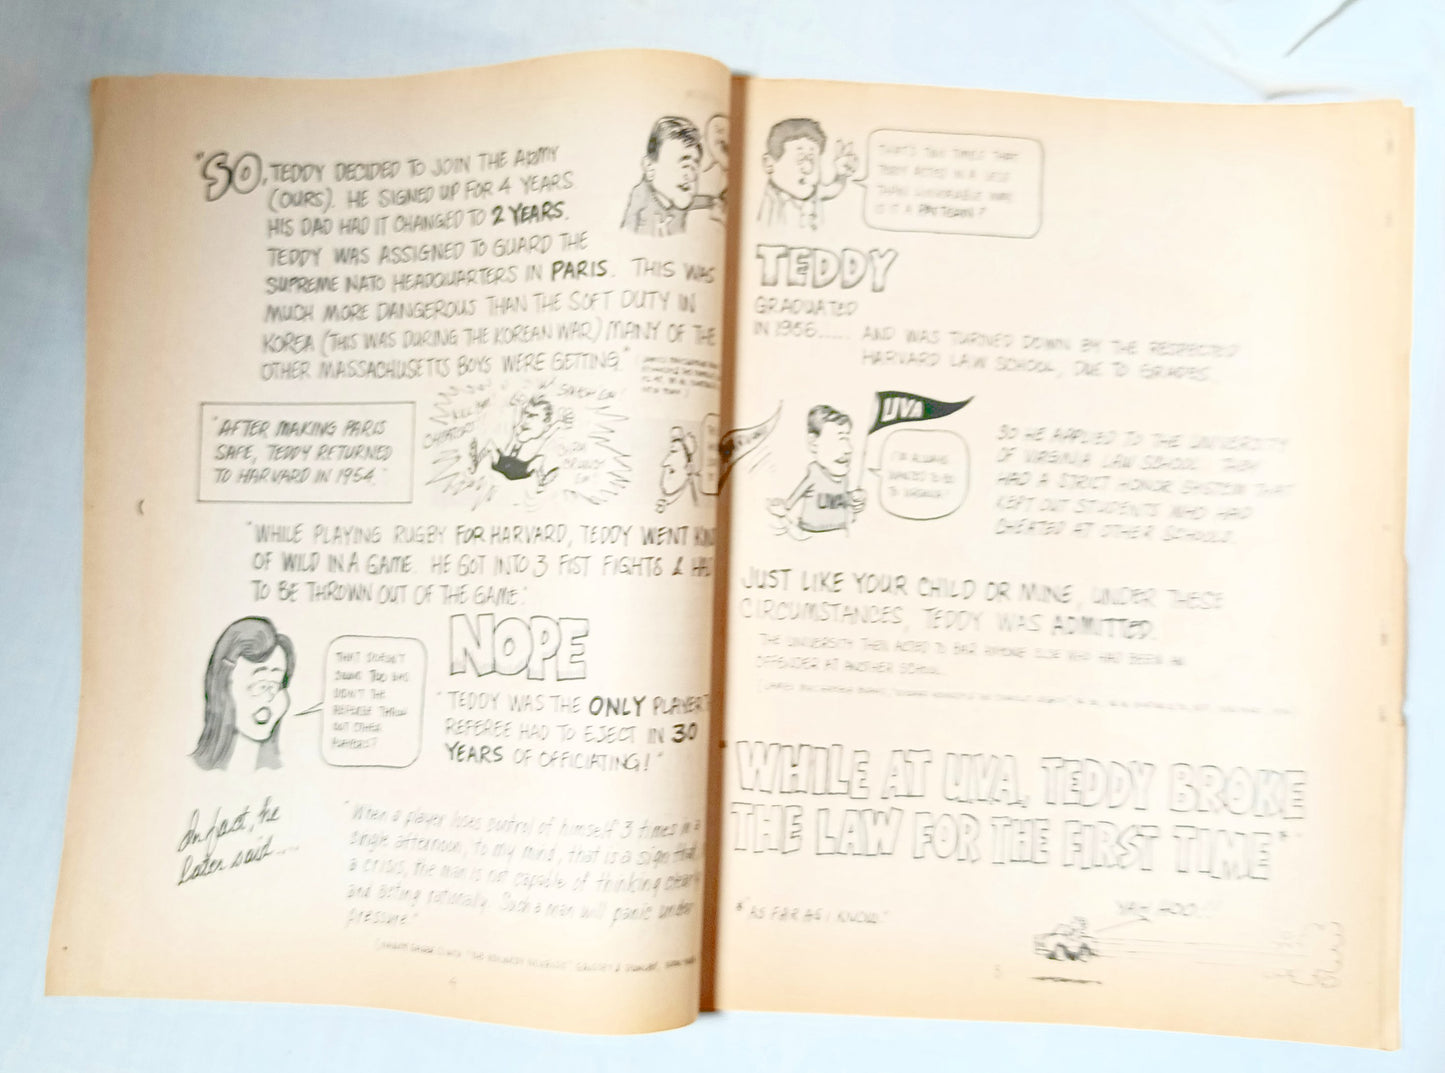 "SO, TEDDY DECIDED TO JOIN THE ARMY
(OURS). HE SIGNED UP FOR 4 YEARS.
HIS DAD HAD IT CHANGED TO 2 YEARS.
TEDDY WAS ASSIGNED TO GUARD THE
SUPREME NATO HEADQUARTERS IN PARIS. THIS WAS
MUCH MORE DANGEROUS THAN THE SOFT DUTY IN
KOREA (THIS WAS DURING THE KOREAN WAR) MANY OF THE
OTHER MASSACHUSETTS BOYS WERE GETTING."
"AFTER MAKING PARIS
SAFE, TEDDY RETURNED
TO HARVARD IN 1954."
"WHILE PLAYING RUGBY FOR HARVARD, TEDDY WENT KIND
OF WILD IN A GAME. HE GOT INTO 3 FIST FIGHTS & HAD
TO BE THROWN OUT OF THE GAME."
THAT DOESN'T
DIDN'T THE
REFEREE THROW
OUT OTHER
PLAYERS?
NOPE
"TEDDY WAS THE ONLY PLAYER
REFEREE HAD TO EJECT IN 30
YEARS OF OFFICIATING!"
In fact, he
later said....
"When a player loses control of himself 3 times in a
single afternoon, to my mind, that is a sign that
a crisis, the man is not capable of thinking clearly
and acting rationally. Such a man will panic under
pressure."
4
THAT'S TWO TIMES THAT
TEDDY ACTED IN A LESS
THAN HONORABLE WAY.
IS IT A PATTERN?
TEDDY
GRADUATED
IN 1956..... AND WAS TURNED DOWN BY THE RESPECTED
HARVARD LAW SCHOOL, DUE TO GRADES.
HARVARD
UVA
I'VE ALWAYS
WANTED TO GO
TO VIRGINIA!
UVA
SO HE APPLIED TO THE UNIVERSITY
OF VIRGINIA LAW SCHOOL. THEY
HAD A STRICT HONOR SYSTEM THAT
KEPT OUT STUDENTS WHO HAD
CHEATED AT OTHER SCHOOLS.
JUST LIKE YOUR CHILD OR MINE, UNDER THESE
CIRCUMSTANCES, TEDDY WAS ADMITTED.
THE UNIVERSITY THEN ACTED TO BAR ANYONE ELSE WHO HAD BEEN AN
OFFENDER AT ANOTHER SCHOOL.
WHILE AT UVA, TEDDY BROKE
THE LAW FOR THE FIRST TIME*"
*"AS FAR AS I KNOW."
YAH HOO!!!
5